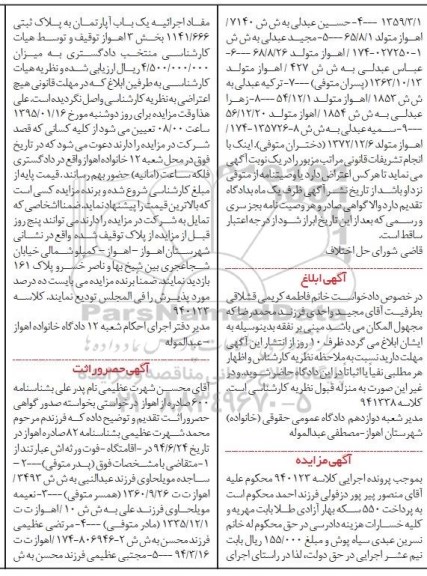 ۱۳۵۹/۳/۱ ---۴-حسین عبدلی به ش ش ۷۱۴۰/
اهواز متولد ۶۵/۸/۱ ---۵-مجید عبدلی به ش ش
۱-۰۲۷۲۵۰-۱۷۴ /اهواز متولد ۶۸/۸/۲۶ ---۶-
عباس عبدلی به ش ش ۴۲۷ / اهواز متولد
۱۳۶۳/۱۰/۱۳ (پسران متوفی) ---۷-ترکیه عبدلی به
ش ش ۱۸۵۳ /اهواز متولد ۵۴/۱۲/۱ ---۸-زهرا
عبدلی به ش ش ۱۸۵۴ /اهواز متولد ۵۶/۱۲/۲۰
---۹-سمیه عبدلی به ش ش ۸-۱۳۵۷۲۶-۱۷۴
/اهواز متولد ۱۳۷۲/۱۲/۶ (دختران متوفی).اینک با
انجام تشریفات قانونی مراتب مزبور را در یک نوبت آگهی
می نماید تا هر کس اعتراضی دارد و یا وصیتنامه از متوفی
نزد او باشد از تاریخ نشر آگهی ظرف یک ماه بدادگاه
تقدیم دارد والا گواهی صادر و هر وصیت نامه بجز سری
و رسمی که بعد از این تاریخ ابراز شود از درجه اعتبار
ساقط است.
قاضی شورای حل اختلاف
آگهی ابلاغ
در خصوص دادخواست خانم فاطمه کریمی قشلاقی
بطرفیت آقای مجید واحدی فرزند محمدرضا که
مجهول المکان می باشد مبنی بر نفقه بدینوسیله به
ایشان ابلاغ می گردد ظرف ۱۰ روز از انتشار این آگهی
مهلت دارید نسبت به ملاحظه نظریه کارشناس و اظهار
هر مطلبی نفیا یا اثباتا در این دادگاه حاضر شوید و در
غیر این صورت به منزله قبول نظریه کارشناس است.
کلاسه ۹۴۱۳۳۸
مدیر شعبه دوازدهم دادگاه عمومی حقوقی (خانواده)
شهرستان اهواز-مصطفی عبدالموله
آگهی مزایده
بموجب پرونده اجرایی کلاسه ۹۴۰۱۲۳ محکوم علیه
آقای منصور پیر پور دزفولی فرزند احمد محکوم است
به پرداخت ۵۵۰ سکه بهار آزادی طلا بابت مهریه و
کلیه خسارات هزینه دادرسی در حق محکوم له خانم
نسرین عبدی سیاه پوش و مبلغ ۱۵۵/۰۰۰ ریال بابت
نیم عشر اجرایی در حق دولت، لذا در راستای اجرای
مفاد اجرائیه یک باب آپارتمان به پلاک ثبتی
۱۱۴۱/۶۶۶ بخش ۳ اهواز توقیف و توسط هیات
کارشناسی منتخب دادگستری به میزان
۴/۵۰۰/۰۰۰/۰۰۰ ریال ارزیابی شده و نظریه هیات
کارشناسی به طرفین ابلاغ که در مهلت قانونی هیچ
اعتراضی به نظریه کارشناسی واصل نگردیده است. علی
هذا وقت مزایده برای روز دوشنبه مورخ ۱۳۹۵/۰۱/۱۶
ساعت ۰۸/۰۰ تعیین می شود از کلیه کسانی که قصد
شرکت در مزایده را دارند دعوت می شود که در تاریخ
فوق در محل شعبه ۱۲ خانواده اهواز واقع در دادگستری
فلکه ساعت (امانیه) حضور بهم رسانند. قیمت پایه از
مبلغ کارشناسی شروع شده و برنده مزایده کسی است
که بالاترین قیمت را پیشنهاد نماید.ضمنا اشخاصی که
تمایل به شرکت در مزایده را دارند می توانند پنج روز
قبل از مزایده از پلاک توقیف شده واقع در نشانی
شهرستان اهواز - اهواز - کمپلو شمالی خیابان
شجاعجری بین شیخ بها و ناصر خسرو پلاک ۱۶۱
بازدید نمایند.ضمنا برنده مزایده می بایست ده درصد
مورد پذیرش را فی المجلس تودیع نمایند. کلاسه
۹۴۰۱۲۳
مدیر دفتر اجرای احکام شعبه ۱۲ دادگاه خانواده اهواز
- عبدالموله
آگهی حصر وراثت
آقای محسن شهرت عظیمی نام پدر علی بشناسنامه
۶۰۰ صادره از اهواز درخواستی بخواسته صدور گواهی
حصر وراثت تقدیم و توضیح داده که فرزندم مرحوم
محمد شهرت عظیمی بشناسنامه ۸۲ صادره اهواز در
تاریخ ۹۴/۶/۲۴ در -اقامتگاه -فوت ورثه اش عبارتند از
۱-متقاضی با مشخصات فوق (پدر متوفی)---۲-
ساجده مویلحاوی فرزند عبدالنبی به ش ش ۳۴۹۳ /
اهواز ت ت ۱۳۶۰/۹/۲۶ (همسر متوفی) ---۳-نعیمه
مویلحاوی فرزند علی به ش ش ۱۰ /اهواز ت ت
۱۳۳۵/۱۲/۱ (مادر متوفی) ---۴-مرتضی عظیمی
فرزند محسن به ش ش ۲-۸۰۶۹۴۶-۱۷۴ /اهواز ت ت
۹۴/۳/۱۶ ---۵-مجتبی عظیمی فرزند محسن به ش